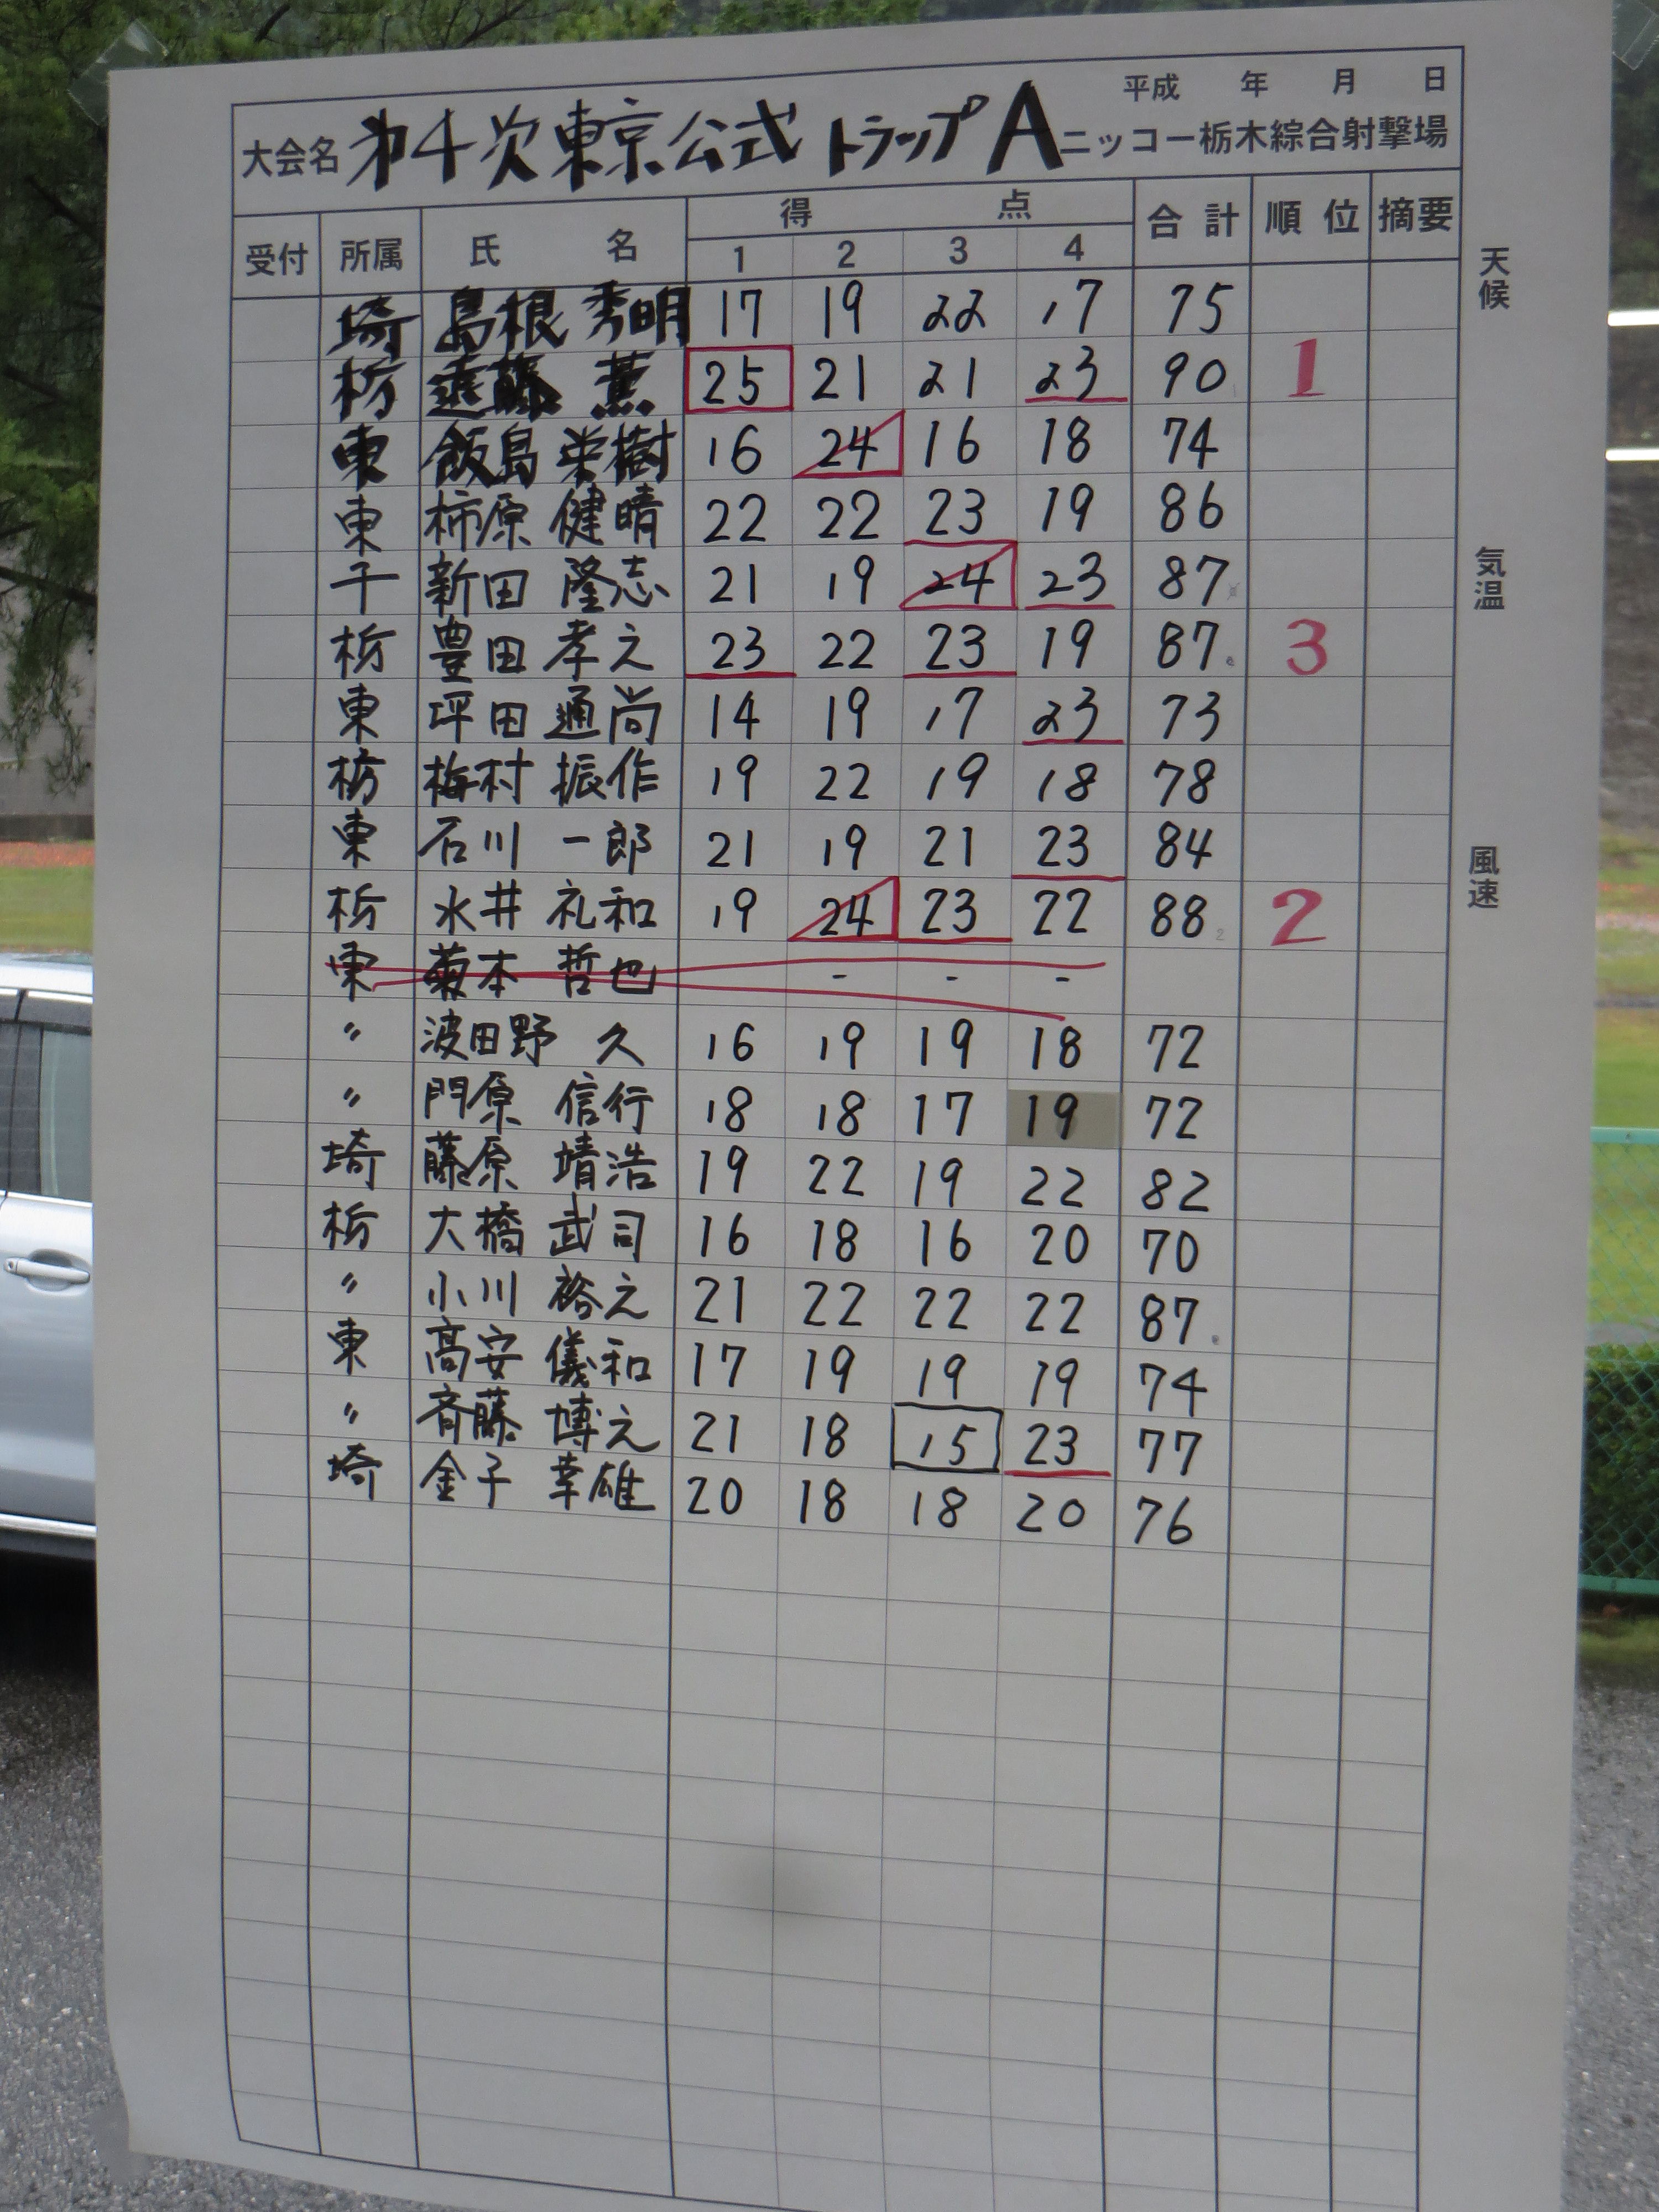 平成 年 月 日
大会名 第4次東京公式トラップA ニッコー栃木綜合射撃場
受付 所属 氏名 得点 合計 順位 摘要
1 2 3 4
天候
気温
風速
埼 島根 秀明 17 19 22 17 75
栃 遠藤 薫 25 21 21 23 90 1
東 飯島 栄樹 16 24 16 18 74
東 柿原 健晴 22 22 23 19 86
千 新田 隆志 21 19 24 23 87
栃 豊田 孝之 23 22 23 19 87 3
東 坪田 通尚 14 19 17 23 73
栃 梅村 振作 19 22 19 18 78
東 石川 一郎 21 19 21 23 84
栃 水井 礼和 19 24 23 22 88 2
東 菊本 哲也 - - -
〃 波田野 久 16 19 19 18 72
〃 門原 信行 18 18 17 19 72
埼 藤原 靖浩 19 22 19 22 82
栃 大橋 武司 16 18 16 20 70
〃 小川 裕之 21 22 22 22 87
東 高安 儀和 17 19 19 19 74
〃 斉藤 博之 21 18 15 23 77
埼 金子 幸雄 20 18 18 20 76